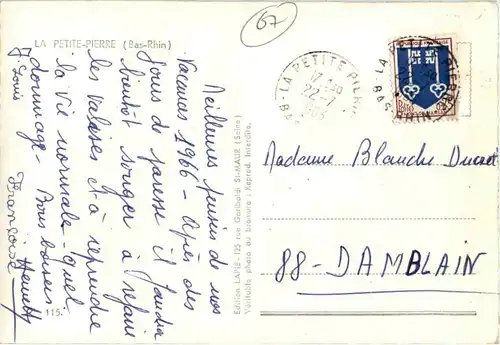 67
LA PETITE-PIERRE (Bas-Rhin)
Meilleures pensées de nos
vacances 1966 - Après des
jours de paresse il faudra
bientôt songer à refaire
les valises et à reprendre
la vie normale - quel
dommage - Bons baisers
Françoise
J. Louis
115.
Edition LAPIE - 125 rue Garibaldi ST-MAUR (Seine)
Véritable photo au bromure : Reprod. Interdite.
LA PETITE PIERRE
22-7
BAS-RHIN
Madame Blanche
88 - DAMBLAIN